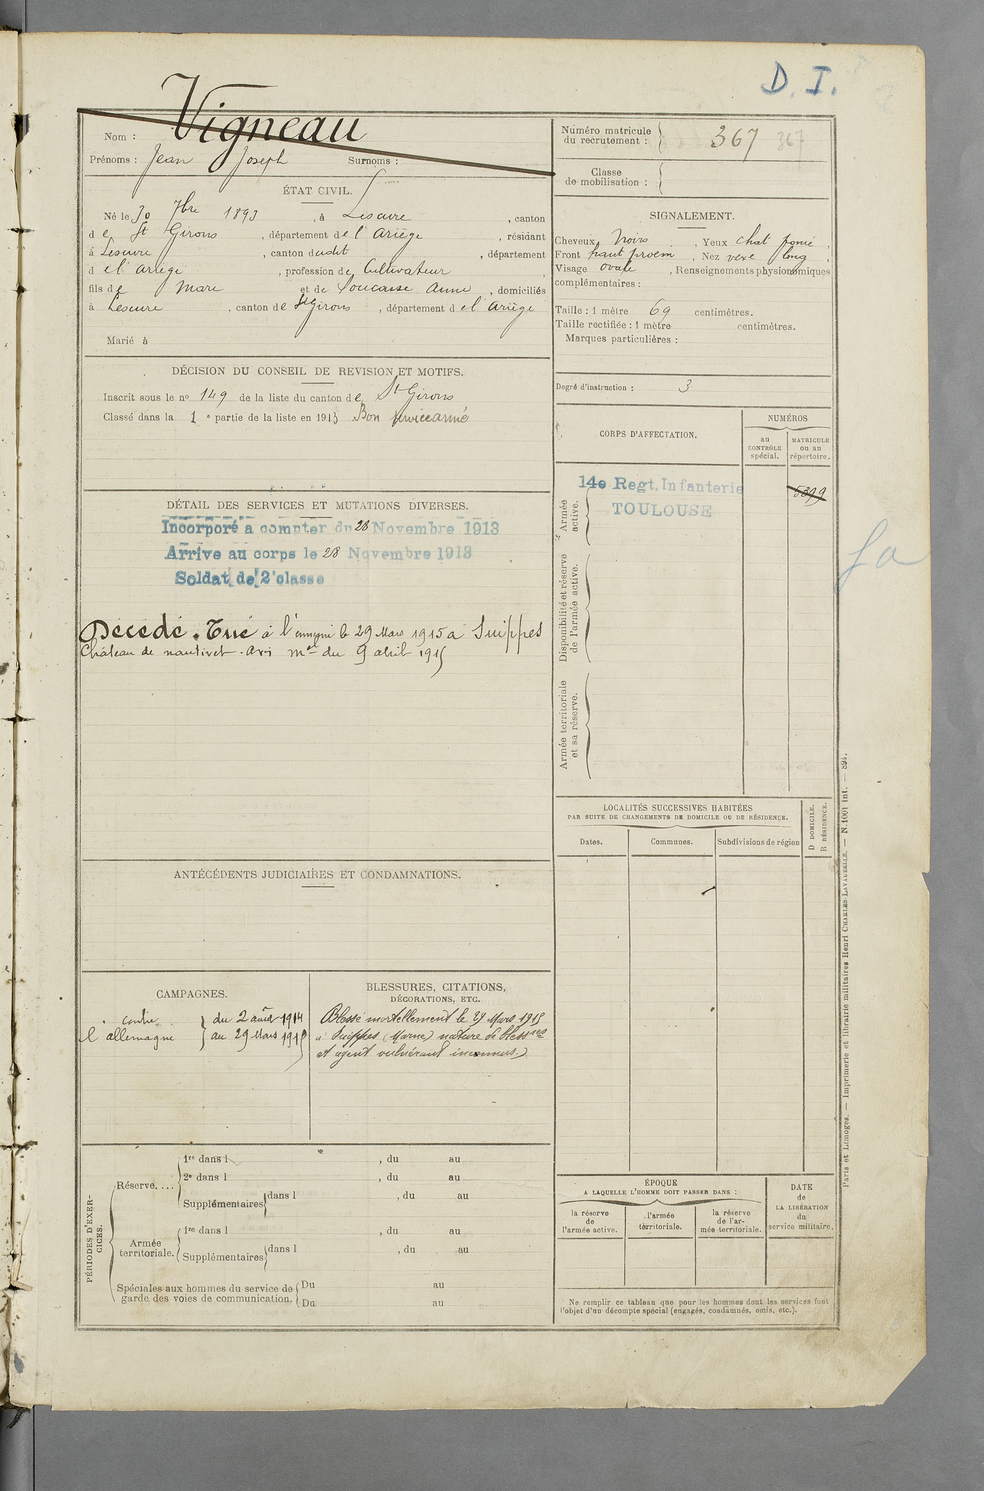 D. I.
Nom : Vigneau
Prénoms : Jean Joseph Surnoms :
ÉTAT CIVIL.
Né le 30 7bre 1893, à Lescure, canton
de St Girons, département de l'Ariège, résidant
à Lescure, canton dudit, département
d el'Ariège, profession de Cultivateur,
fils de Marc et de Soucasse Anne, domiciliés
à Lescure, canton de St Girons, département d el'Ariège
Marié à
DÉCISION DU CONSEIL DE REVISION ET MOTIFS.
Inscrit sous le no 149 de la liste du canton de St Girons
Classé dans la 1e partie de la liste en 1913 Bon service armé
DÉTAIL DES SERVICES ET MUTATIONS DIVERSES.
Incorporé à compter du 28 Novembre 1913
Arrivé au corps le 28 Novembre 1913
Soldat de 2e classe
Décédé. Tué à l'ennemi le 29 Mars 1915 à Suippes
Château de nantivet. avis mel du 9 abril 1915
ANTÉCÉDENTS JUDICIAIRES ET CONDAMNATIONS.
CAMPAGNES.
contre du 2 août 1914
l'allemagne au 29 Mars 1915
BLESSURES, CITATIONS,
DÉCORATIONS, ETC.
Blessé mortellement le 29 Mars 1915
à Suippes (Marne) nature de blessres
et agent vulnérant inconnus.)
PÉRIODES D'EXERCICES.
Réserve....
1re dans l , du au
2e dans l , du au
Supplémentaires dans l , du au
Armée territoriale.
1re dans l , du au
Supplémentaires dans l , du au
Spéciales aux hommes du service de garde des voies de communication.
Du au
Du au
Numéro matricule
du recrutement : 367 367
Classe
de mobilisation :
SIGNALEMENT.
Cheveux Noirs, Yeux chat foncé,
Front haut proém, Nez vexe long,
Visage ovale, Renseignements physionomiques
complémentaires :
Taille : 1 mètre 69 centimètres.
Taille rectifiée : 1 mètre centimètres.
Marques particulières :
Degré d'instruction : 3
CORPS D'AFFECTATION.
NUMÉROS
au
CONTRÔLE
spécial.
MATRICULE
ou au
répertoire.
Armée
active.
14e Regt. Infanterie
TOULOUSE
5399
Disponibilité et réserve
de l'armée active.
Armée territoriale
et sa réserve.
LOCALITÉS SUCCESSIVES HABITÉES
PAR SUITE DE CHANGEMENTS DE DOMICILE OU DE RÉSIDENCE.
Dates.
Communes.
Subdivisions de région
D DOMICILE.
R RÉSIDENCE.
ÉPOQUE
A LAQUELLE L'HOMME DOIT PASSER DANS :
la réserve
de
l'armée active.
l'armée
territoriale.
la réserve
de l'ar-
mée territoriale.
DATE
de
LA LIBÉRATION
du
service militaire.
Ne remplir ce tableau que pour les hommes dont les services font
l'objet d'un décompte spécial (engagés, condamnés, omis, etc.).
Paris et Limoges. — Imprimerie et librairie militaires Henri CHARLES-LAVAUZELLE. — N. 1001 int. —